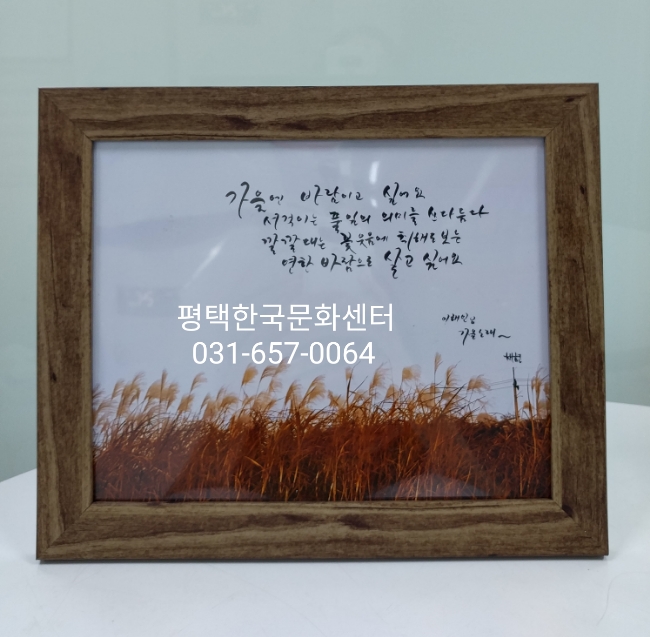 가을엔 바람이고 싶어요
서걱이는 풀잎의 의미를 쓰다듬다
깔깔대는 꽃웃음에 취해도 보는
연한 바람으로 살고 싶어요
이해인님
가을노래~
해현
평택한국문화센터
031-657-0064